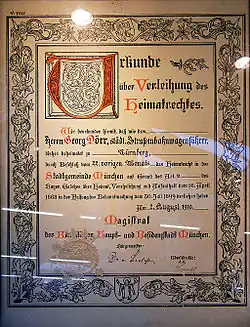 Urkunde
über Verleihung des
Heimatrechtes.
Wir beurkunden hiemit, daß wir dem
Herrn Georg Dörr, städt. Straßenbahnwagenführer,
bisher beheimatet in Nürnberg,
durch Beschluß vom 22. vorigen Monats das Heimatrecht in der
Stadtgemeinde München auf Grund des
Gesetzes über Heimat, Verehelichung und Aufenthalt vom 16. April
1868 in der Fassung der Bekanntmachung vom 30. Juli 1899 verliehen haben.
2. August 1910.
Magistrat
der Kgl. Haupt- und Residenzstadt München.
Bürgermeister: